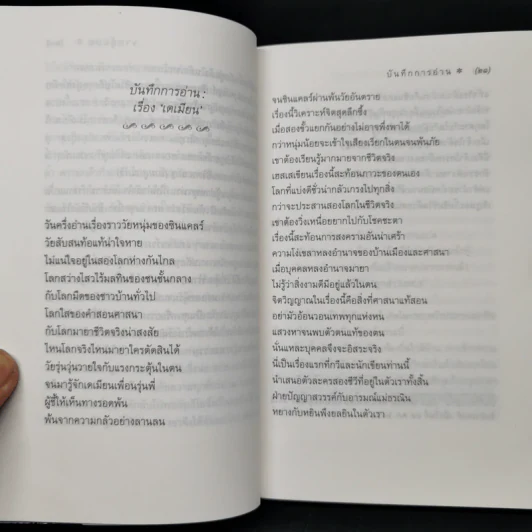 บันทึกการอ่าน :
เรื่อง 'เดเมียน'
วันครึ่งอ่านเรื่องราววัยหนุ่มของซินแคลร์
วัยสับสนท้อแท้น่าใจหาย
ไม่แน่ใจอยู่ในสองโลกห่างกันไกล
โลกสว่างไสวไร้มลทินของชนชั้นกลาง
กับโลกมืดของชาวบ้านทั่วไป
โลกใสของคำสอนศาสนา
กับโลกมายาชีวิตจริงน่าสงสัย
ไหนโลกจริงไหนมายาใครตัดสินได้
วัยรุ่นวุ่นวายใจกับแรงกระตุ้นในตน
จนมารู้จักเดเมียนเพื่อนรุ่นพี่
ผู้ชี้ให้เห็นทางรอดพ้น
พ้นจากความกลัวอย่างลานลน
บันทึกการอ่าน * (๒๑)
จนซินแคลร์ผ่านพ้นวัยอันตราย
เรื่องนี้วิเคราะห์จิตสุดลึกซึ้ง
เมื่อสองขั้วแยกกันอย่างไม่อาจพึ่งพาได้
กว่าหนุ่มน้อยจะเข้าใจเสียงเรียกในตนจนพ้นภัย
เขาต้องเรียนรู้มากมายจากชีวิตจริง
เฮสเสเขียนเรื่องนี้สะท้อนภาวะของตนเอง
โลกที่แบ่งดีชั่วน่ากลัวเกรงไปทุกสิ่ง
กว่าจะประสานสองโลกในชีวิตจริง
เขาต้องวิ่งเหนื่อยยากไปกับโชคชะตา
เรื่องนี้สะท้อนการสงครามอันน่าเศร้า
ความโง่เขลาหลงอำนาจของบ้านเมืองและศาสนา
เมื่อบุคคลหลงอำนาจมายา
ไม่รู้ว่าสิ่งงามดีมีอยู่แล้วในตน
จิตวิญญาณในเรื่องนี้คือสิ่งที่ศาสนาแท้สอน
อย่ามัวอ้อนวอนเทพทุกแห่งหน
แสวงหาจนพบตัวตนแท้ของตน
นั่นแหละบุคคลจึงจะอิสระจริง
นี่เป็นเรื่องแรกที่กวีและนักเขียนท่านนี้
นำเสนอตัวละครสองชีวีที่อยู่ในตัวเราทั้งสิ้น
ฝ่ายปัญญาสวรรค์กับอารมณ์แม่ธรณิน
หยางกับหยินพึงยลยินในตัวเรา